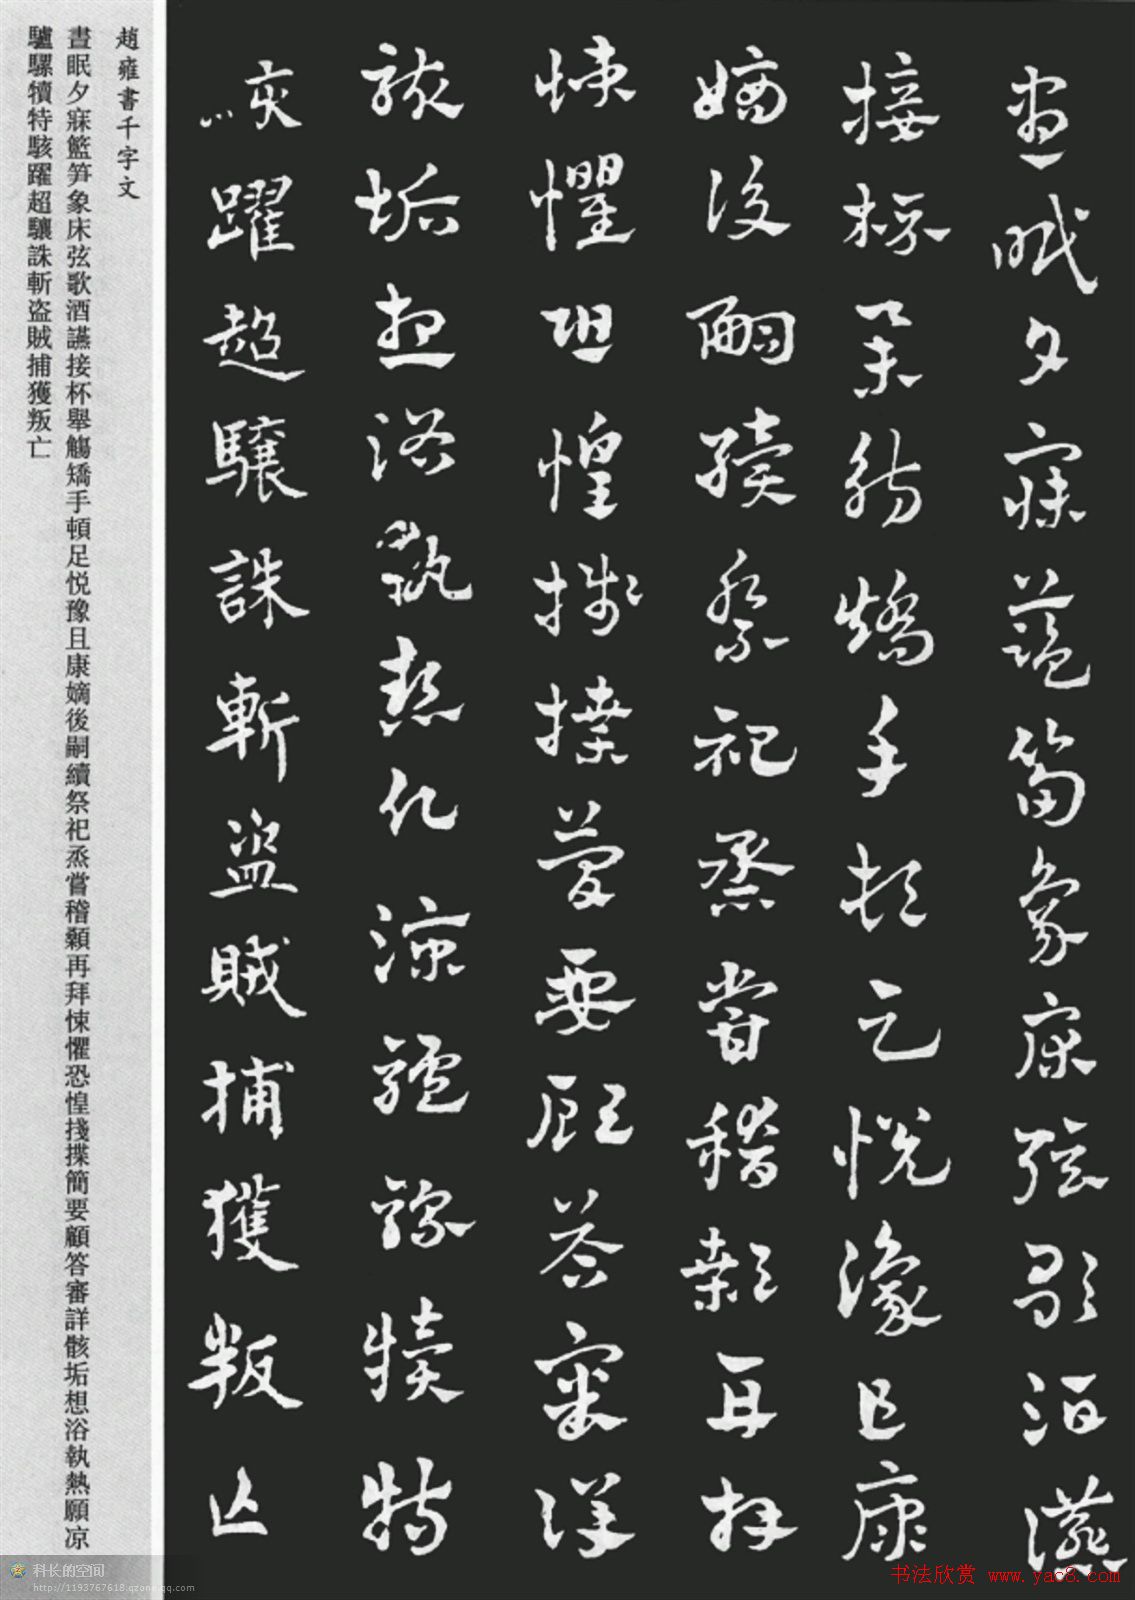 晝眠夕寐藍笋象床弦歌酒讌
接杯舉觴矯手頓足悅豫且康
嫡後嗣續祭祀烝嘗稽顙再拜
悚懼恐惶牋牒簡要顧答審詳
骸垢想浴執熱願凉驢騾犢特
駭躍超驤誅斬盜賊捕獲叛亡
趙雍書千字文
晝眠夕寐籃笋象床弦歌酒讌接杯舉觴矯手頓足悦豫且康嫡後嗣續祭祀烝嘗稽顙再拜悚懼恐惶揲簡要顧答審詳骸垢想浴執熱願凉
驢騾犢特駭躍超驤誅斬盗賊捕獲叛亡
科长的空间
http://1193767618.qzone.qq.com
书法欣赏 www.yac8.com